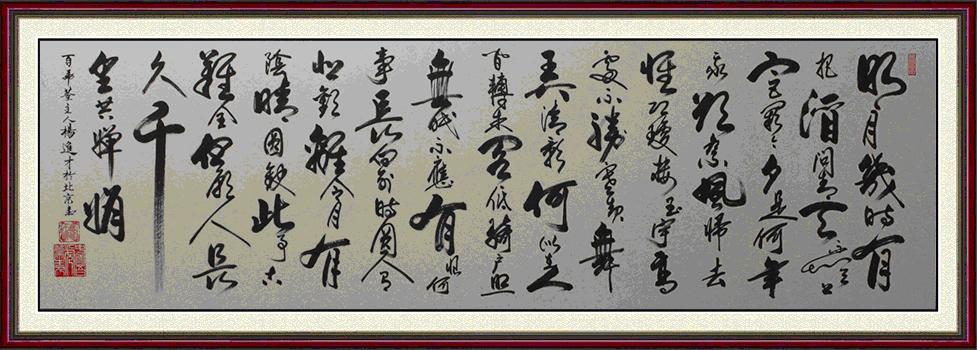 明月幾時有
把酒問青天不知天上
宮闕今夕是何年
我欲乘風歸去
惟恐瓊樓玉宇高
處不勝寒起舞
弄清影何似在人
間轉朱閣低綺戶照
無眠不應有恨何
事長向別時圓人有
悲歡離合月有
陰晴圓缺此事古
難全但願人長
久千
里共嬋娟
百主人楊進才於北京書